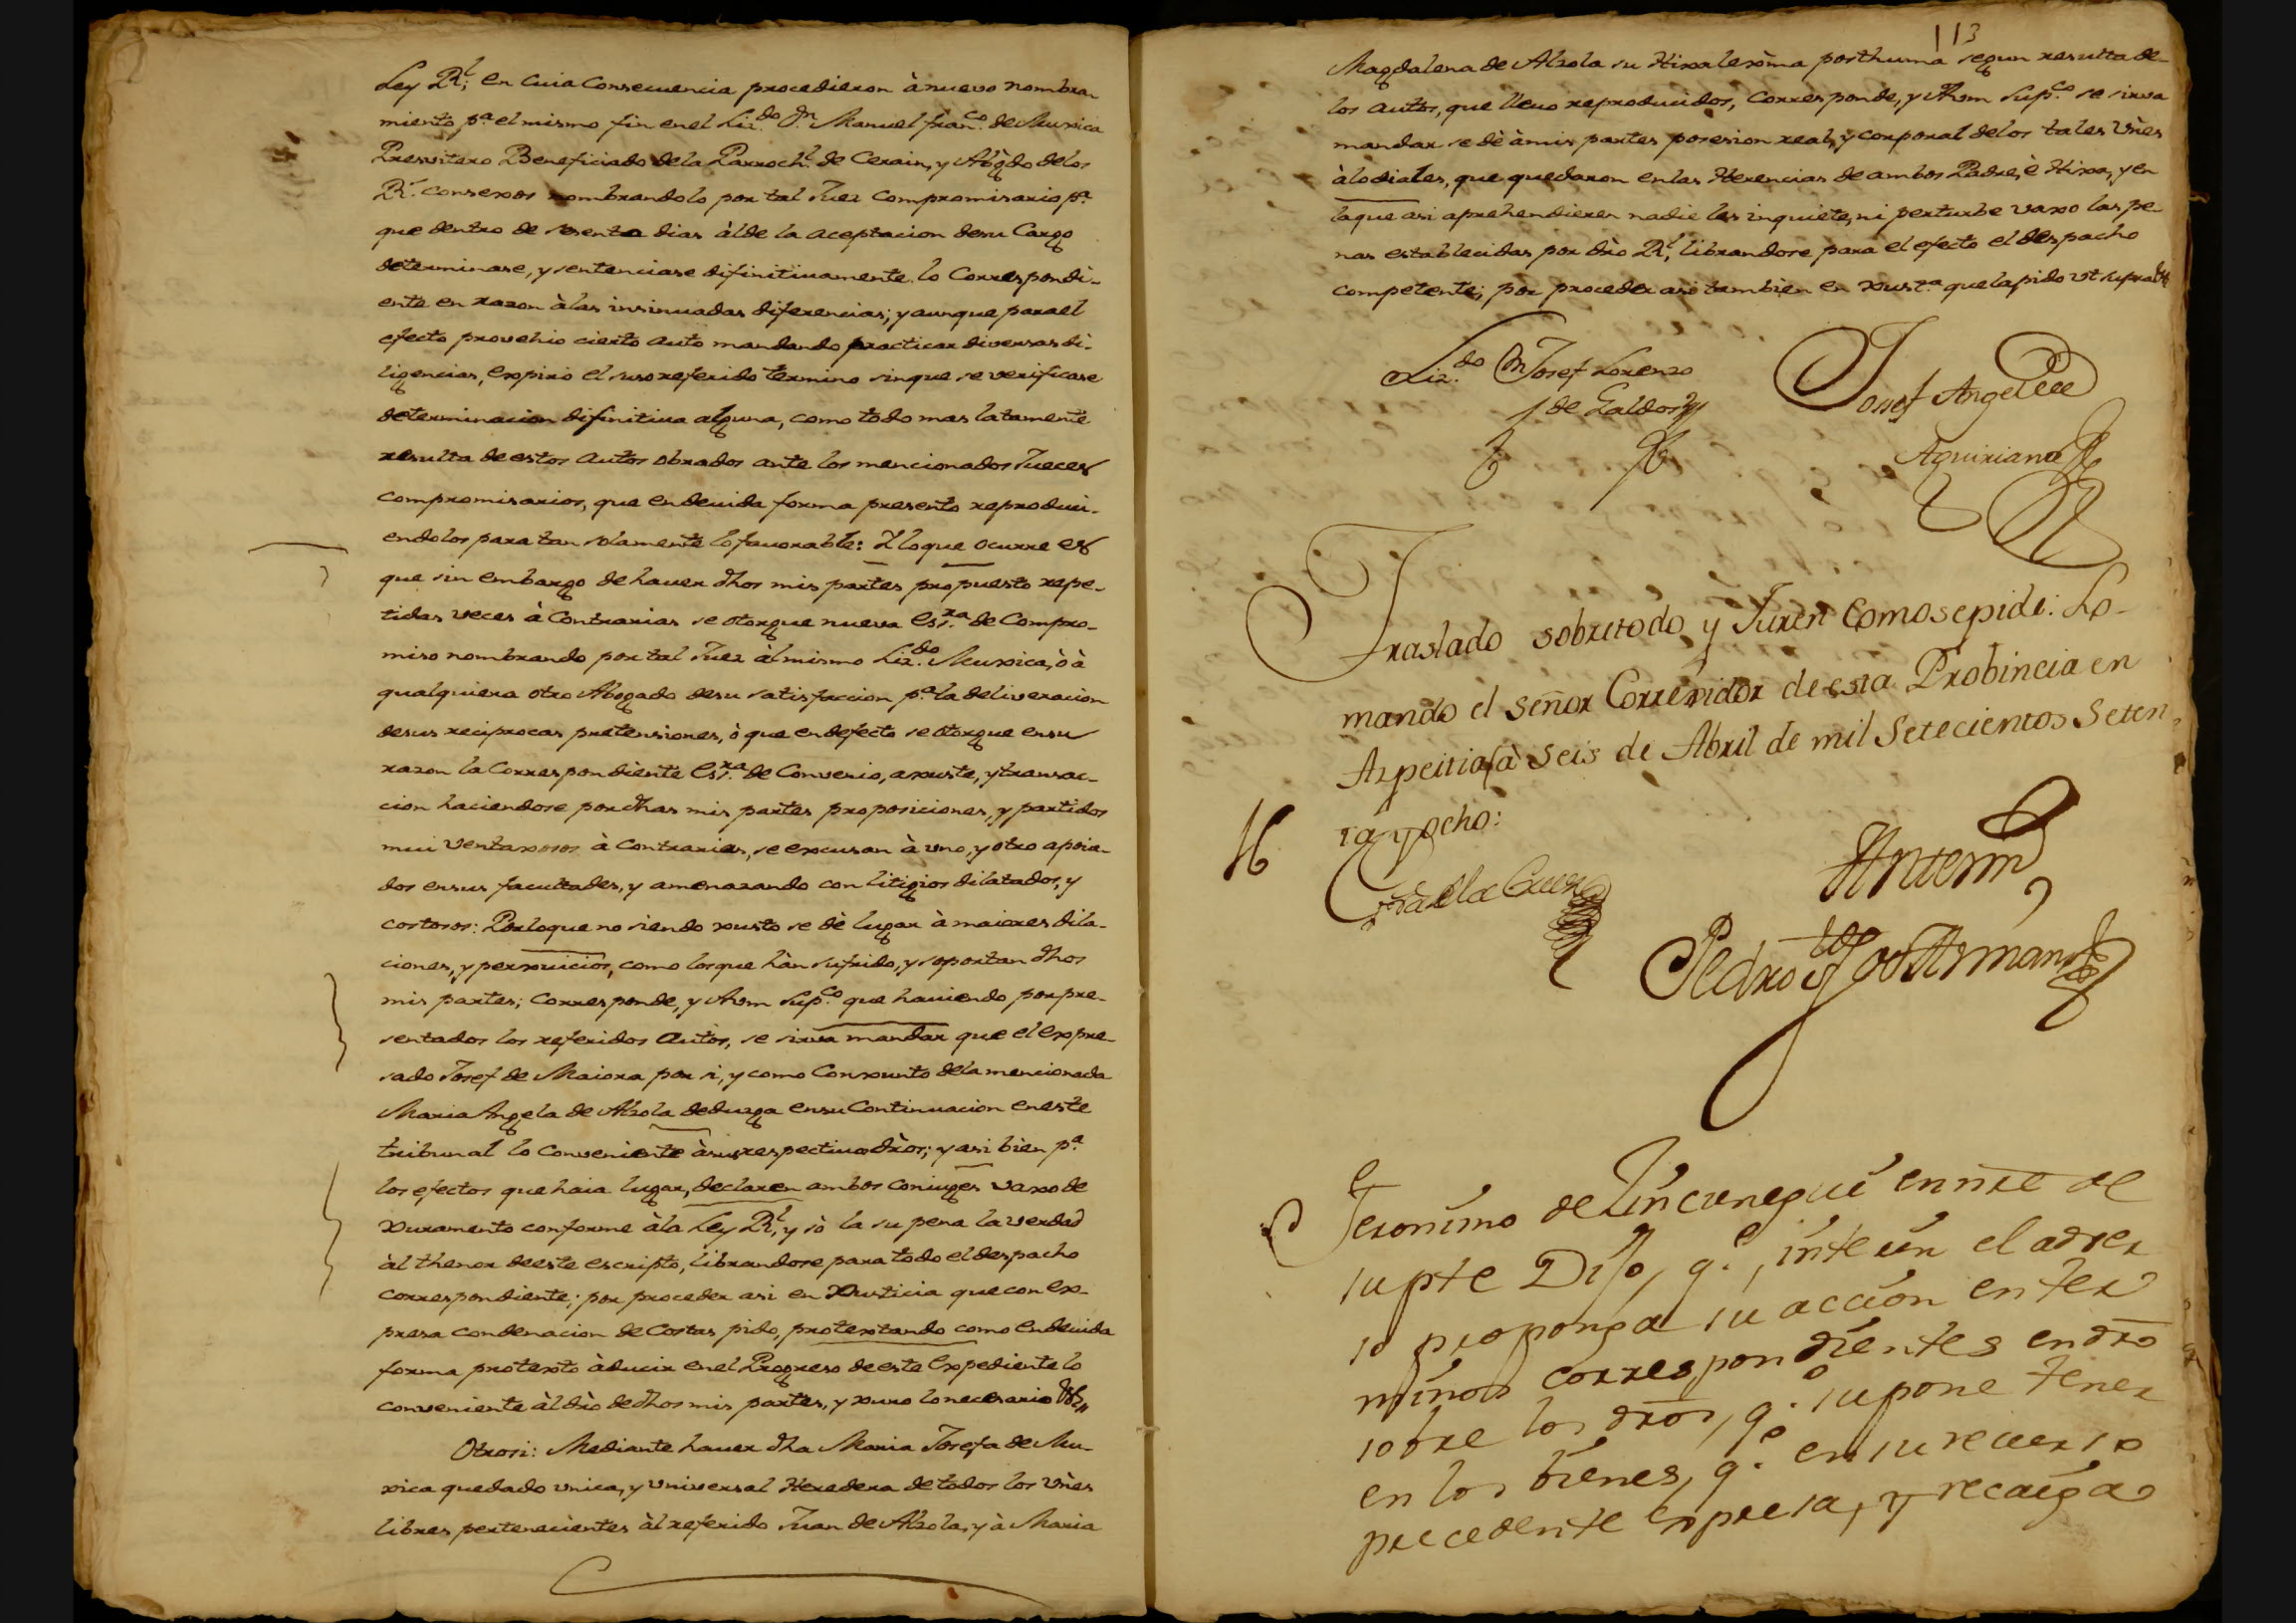 Ley Rl; en cuia Consecuencia procedieron à nuevo nombra-
miento pa. el mismo fin en el Lizdo. Dn. Manuel Franco. de Muxica
Presvitero Beneficiado de la Parrochl. de Cerain, y Abogdo de los
Rs. Consexos nombrandolo por tal Juez Compromisario pa.
que dentro de sesenta dias àl de la aceptacion de su Cargo
determinase, y sentenciase difinitivamente lo Correspondi-
ente en razon à las insinuadas diferencias; y aunque para el
efecto provehio cierto auto mandando practicar diversas di-
ligencias, expirò el suso referido termino sin que se verificase
determinacion difinitiva alguna, como todo mas latamente
resulta de estos autos obrados ante los mencionados Jueces
compromisarios, que en devida forma presento reproduci-
endolos para tan solamente lo favorable: Y lo que ocurre es
que sin embargo de haver dhos mis partes propuesto repe-
tidas veces à Contrarias se otorgue nueva Esra. de Compro-
miso nombrando por tal Juez àl mismo Lizdo. Muxica, ò à
qualquiera otro Abogado de su satisfaccion pa. la deliveracion
de sus reciprocas pretensiones, ò que en defecto se otorgue en su
razon la Correspondiente Esra. de Convenio, axuste, y transac-
cion haciendose por dhas mis partes proposiciones, y partidos
mui ventaxosos à Contrarias, se excusan à uno, y otro apoia-
dos en sus facultades, y amenazando con litigios dilatados, y
costosos: Por lo que no siendo xusto se dè lugar à maiores dila-
ciones, y perxuicios, como los que hàn sufrido, y soportan dhos
mis partes; Corresponde, y Avm Supco. que haviendo por pre-
sentados los referidos Autos, se sirva mandar que el expre-
sado Josef de Maiora por si, y como Conxunto de la mencionada
Maria Angela de Alzola deduzga en su Continuacion en este
tribunal lo Conveniente à sus respectivos dròs; y asi bien pa.
los efectos que haia lugar, declaren ambos coniuges vaxo de
Xuramento conforme à la Ley Rl, y sò la su pena la verdad
àl thenor de este escripto, librandose para todo el despacho
correspondiente; por proceder asi en Xusticia que con ex-
presa condenacion de Costas pido, protextando como en devida
forma protexto àducir en el Progreso de este Expediente lo
conveniente àl drò de dhos mis partes, y xuro lo necesario
Otrosi: Mediante haver dha Maria Josefa de Mu-
xica quedado unica, y universal Heredera de todos los Vnes
libres pertenecientes àl referido Juan de Alzola, y à Maria
113
Magdalena de Alzola su Hixa lexìma posthuma segun resulta de
los autos, que llevo reproducidos, Corresponde, y Avm Supco. se sirva
mandar se dè à mis partes posesion real, y corporal de los tales Vnes
àlodiales, que quedaron en las Herencias de ambos Padre, è Hixa, y en
la que asi aprehendieren nadie les inquiete, ni perturbe vaxo las pe-
nas establecidas por drò Rl, librandose para el efecto el despacho
competente; por proceder asi tambien en Xusta. que la pido vt supra
Lizdo. Dn Josef Lorenzo
de Galdos
Josef Angel de
Aquiriano
Traslado sobretodo y Juren Como se pide: Lo
mando el Señor Correxidor de esta Probincia en
Azpeitia à seis de Abril de mil Setecientos Seten-
ta y ocho:
de la Cruz
Antemi
Pedro Jos
Jeronimo de Uncunegui en nre de
su pte Dijo, qe. inte un el adver
so proponga su acción en ter
minos correspondientes en dro
sobre los dros, qe. supone tener
en los bienes, qe. en su recurso
precedente expresa, y recaiga